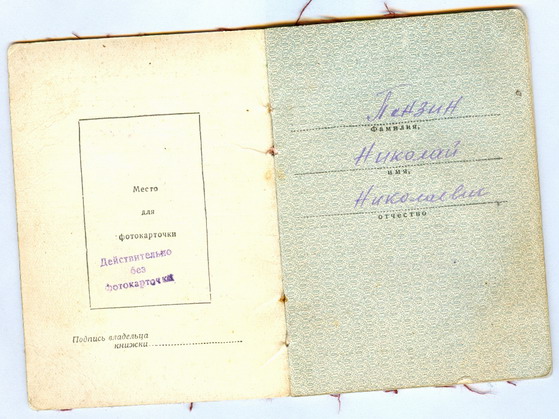 Место
для
фотокарточки
Действительно
без
фотокарточки
Подпись владельца
книжки
Пензин
Фамилия,
Николай
имя,
Николаевич
отчество